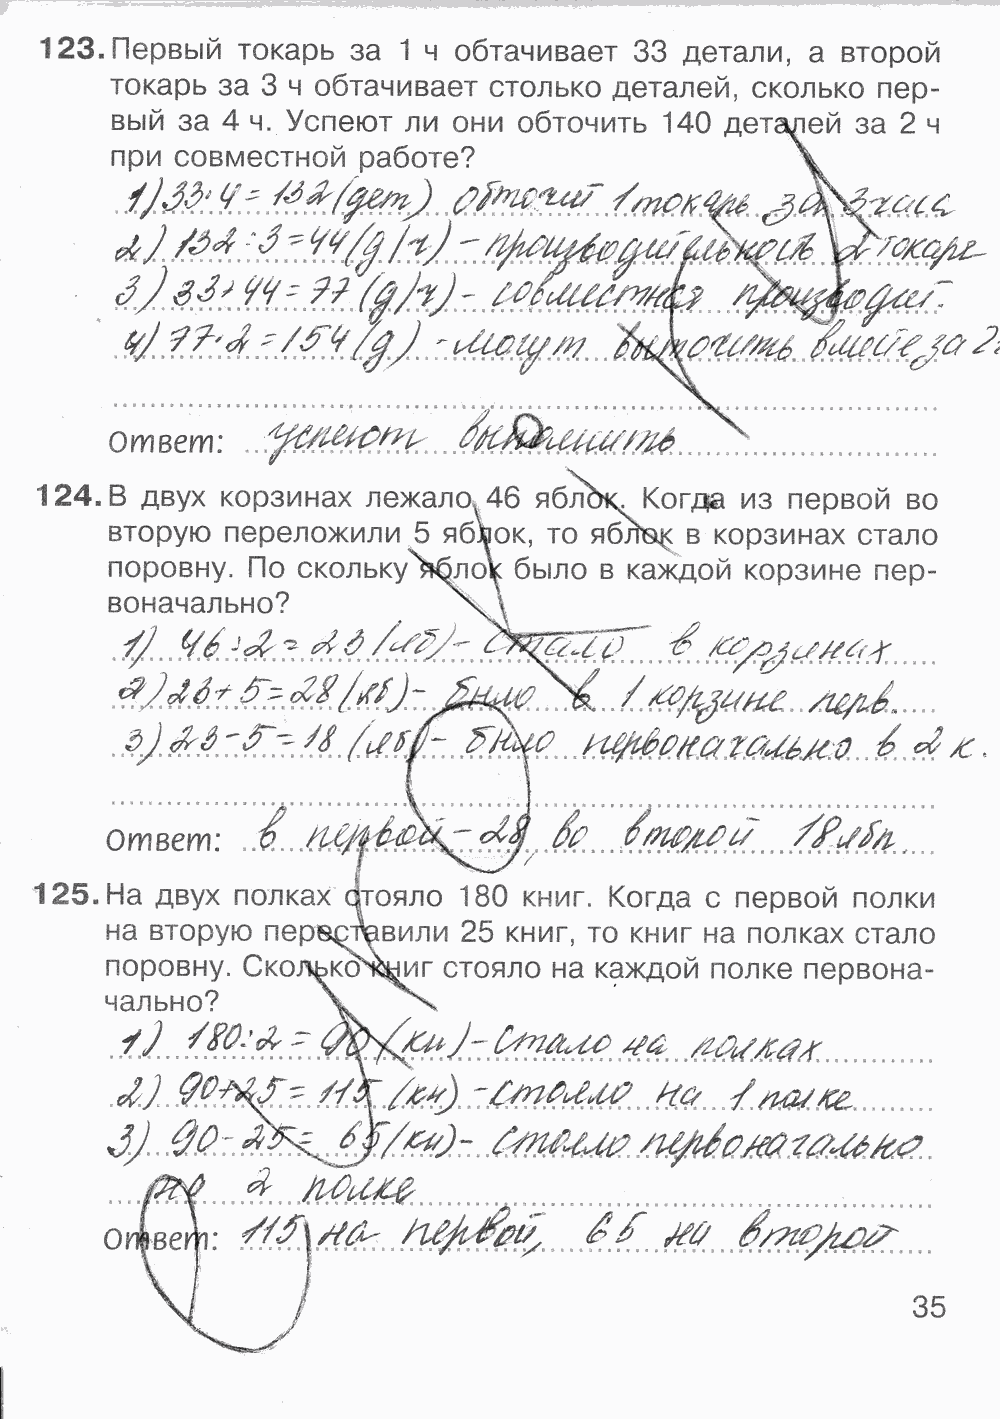 123. Первый токарь за 1 ч обтачивает 33 детали, а второй
токарь за 3 ч обтачивает столько деталей, сколько пер-
вый за 4 ч. Успеют ли они обточить 140 деталей за 2 ч
при совместной работе?
1) 33·4=132(дет) обточит 1 токарь за 3 часа
2) 132:3=44(д/ч) - производительность 2 токаря
3) 33+44=77(д/ч) - совместная производит.
4) 77·2=154(д) - могут выточить вместе за 2ч
Ответ: успеют выполнить
124. В двух корзинах лежало 46 яблок. Когда из первой во
вторую переложили 5 яблок, то яблок в корзинах стало
поровну. По скольку яблок было в каждой корзине пер-
воначально?
1) 46:2=23(яб) - стало в корзинах
2) 23+5=28(яб) - было в 1 корзине перв.
3) 23-5=18(яб) - было первоначально в 2 к.
Ответ: в первой - 28, во второй 18 ябл.
125. На двух полках стояло 180 книг. Когда с первой полки
на вторую переставили 25 книг, то книг на полках стало
поровну. Сколько книг стояло на каждой полке первона-
чально?
1) 180:2=90(кн) - стало на полках
2) 90+25=115(кн) - стояло на 1 полке
3) 90-25=65(кн) - стояло первоначально
на 2 полке
Ответ: 115 на первой, 65 на второй
35